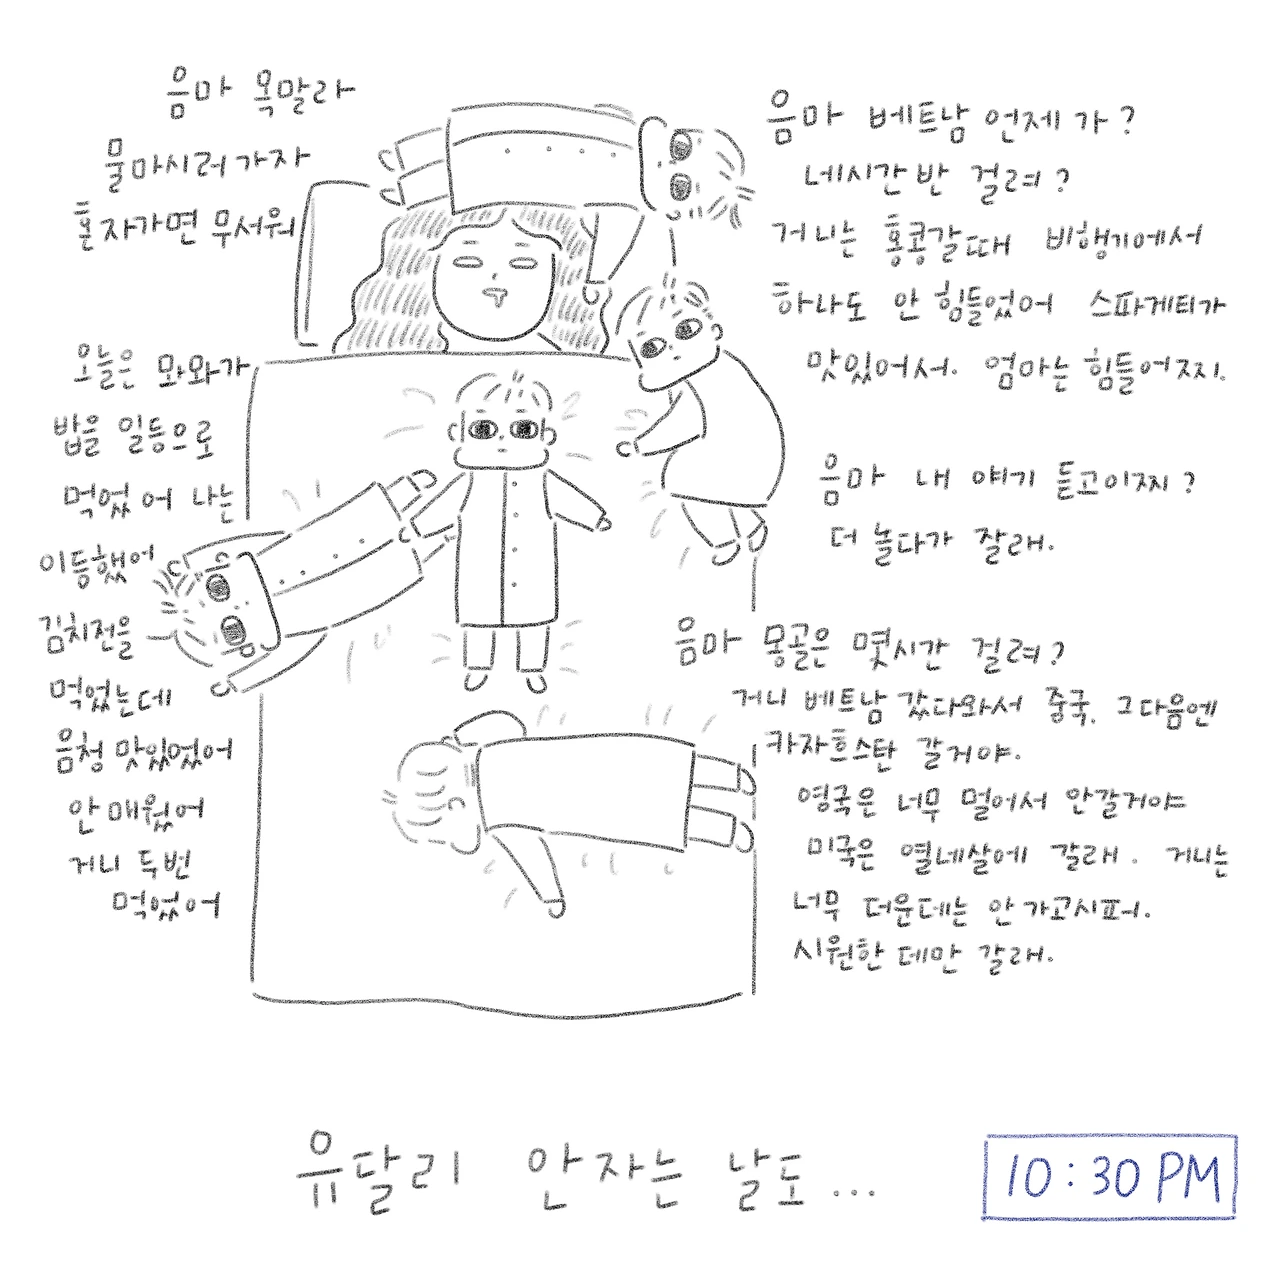 음마 목말라
물마시러가자
혼자가면 무서워
오늘은 와와가
밥을 일등으로
먹었어 나는
이등했어
김치전을
먹었는데
음청 맛있었어
안매웠어
거니 두번
먹었어
음마 베트남 언제가?
네시간반 걸려?
거니는 홍콩갈때 비행기에서
하나도 안 힘들었어 스파게티가
맛있어서. 엄마는힘들어찌.
음마 내 얘기 듣고이찌?
더 놀다가 잘래.
음마 몽골은 몇시간 걸려?
거니 베트남 갔다와서 중국. 그다음엔
카자흐스탄 갈거야.
영국은 너무 멀어서 안갈거야
미국은 열네살에 갈래. 거니는
너무 더운데는 안가고시퍼.
시원한 데만 갈래.
유달리 안자는 날도...
10:30 PM